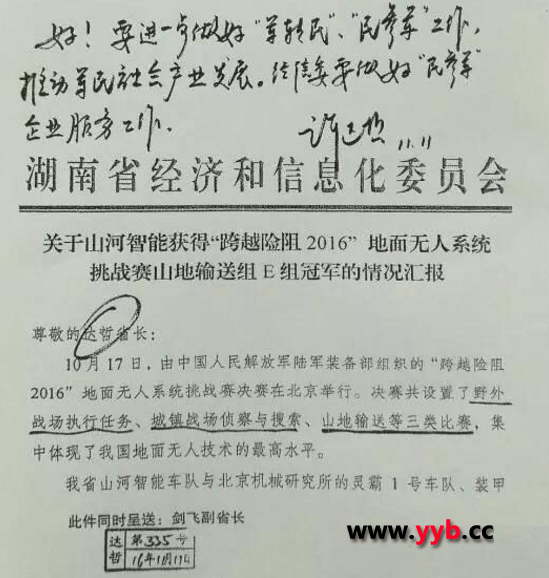 好！要进一步做好“军转民”、“民参军”工作，
推动军民社会产业发展。经信委要做好“民参军”
企业服务工作。
许达哲 11.11
湖南省经济和信息化委员会
关于山河智能获得“跨越险阻 2016” 地面无人系统
挑战赛山地输送组 E 组冠军的情况汇报
尊敬的达哲省长：
10 月 17 日，由中国人民解放军陆军装备部组织的“跨越险阻
2016” 地面无人系统挑战赛决赛在北京举行。决赛共设置了野外
战场执行任务、城镇战场侦察与搜索、山地输送等三类比赛，集
中体现了我国地面无人技术的最高水平。
我省山河智能车队与北京机械研究所的灵霸 1 号车队、装甲
此件同时呈送：剑飞副省长
达哲 第335号
www.yyb.cc